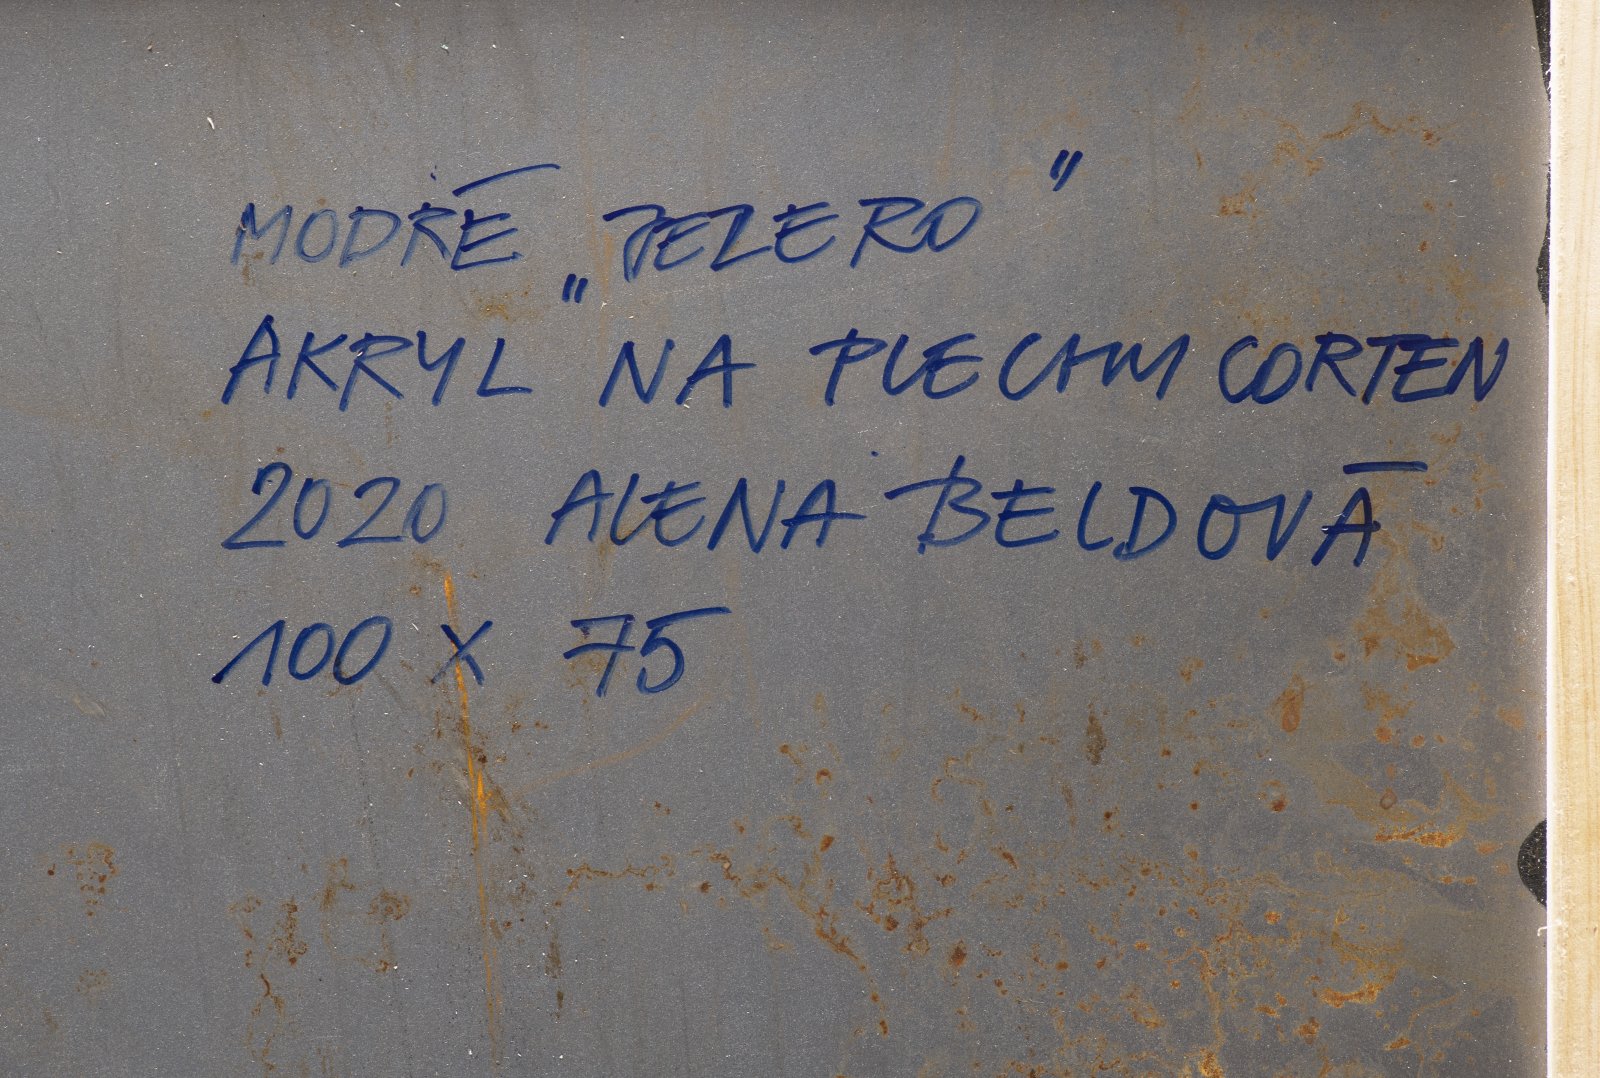 MODRÉ „JEZERO"
AKRYL NA PLECHU CORTEN
2020 ALENA BELDOVÁ
100 x 75